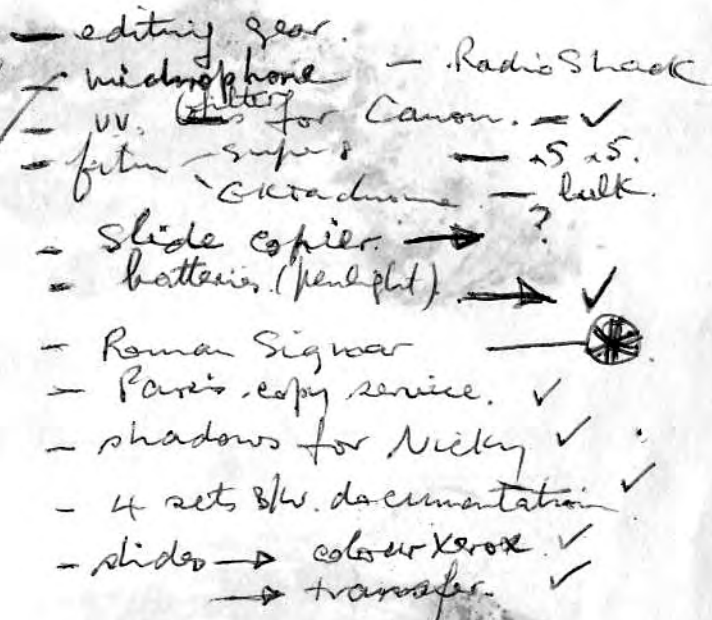 — editing gear.
— microphone — RadioShack
— UV. filters for Canon. — ✓
— film – Super 8 — x5 x5.
Ektachrome — bulk.
- Slide copier. → ?
- batteries (penlight). → ✓
- Roman Signer
- Paris copy service. ✓
- shadows for Nicky ✓
- 4 sets B/W. documentation ✓
- slides → colour Xerox ✓
→ transfer. ✓